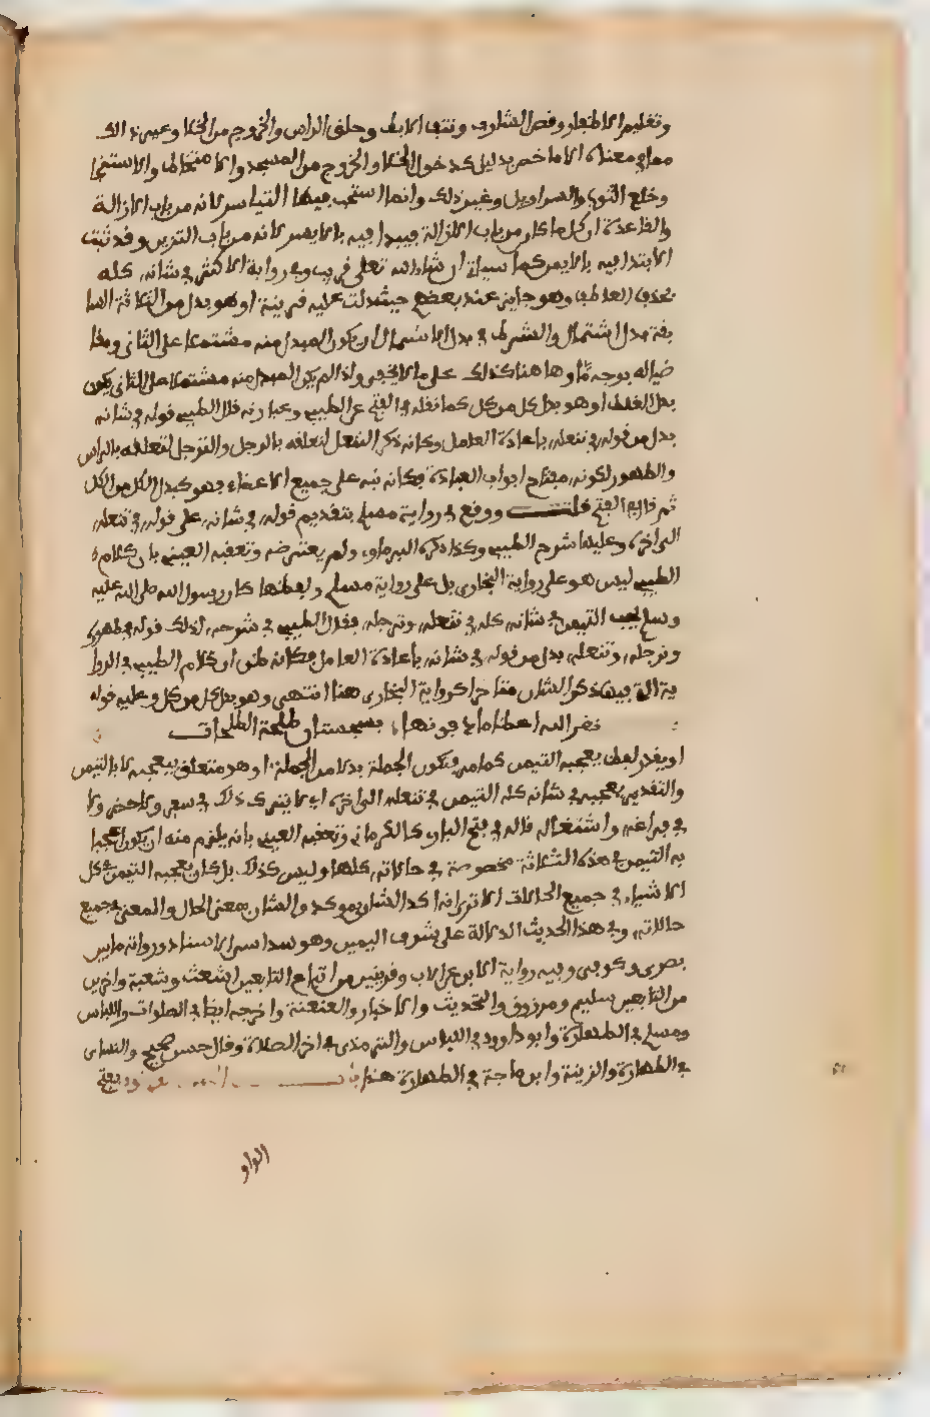 وتقليم الاظفار وقص الشارب ونتف الابط وحلق الراس والخروج من الخلا وغير ذالك
مما في معناه الا ما خص بدليل كدخول الخلا والخروج من المسجد والامتخاط والاستنجا
وخلع الثوب والسراويل وغير ذلك وانما استحب فيها التياسر لانه من باب الازالة
والقاعدة ان كل ما كان من باب الازالة فيبدا فيه بالايسر لانه من باب التزين وقد ثبت
الابتدا فيه بالايمن كما سياتي ان شاء الله تعلى قريب وفي رواية الاكثر في شانه كله
بحذف العاطف وهو جايز عند بعضهم حيث دلت عليه قرينة او هو بدل من الثلاثة السا
بقة بدل اشتمال والشرط في بدل الاشتمال ان يكون المبدل منه مشتملا على الثاني ومتقا
ضيا له بوجه ما وها هنا كذلك على ما لا يخفى واذا لم يكن المبدل منه مشتملا على الثاني يكون
بدل الغلط او هو بدل كل من كل كما نقله في الفتح عن الطيبي وعبارته قال الطيبي قوله في شانه
بدل من قوله في تنعله باعادة العامل وكانه ذكر التنعل لتعلقه بالرجل والترجل لتعلقه بالراس
والطهور لكونه مفتاح ابواب العبادة فكانه نبه على جميع الاعضاء فهو كبدل الكل من الكل
ثم قال في الفتح قلت ووقع في رواية مسلم بتقديم قوله في شانه على قوله في تنعله
الى اخره وعليها شرح الطيبي وكذا ذكره البرماوي ولم يعترضه وتعقبه العيني بان كلام
الطيبي ليس هو على رواية البخاري بل على رواية مسلم ولفظها كان رسول الله صلى الله عليه
وسلم يحب التيمن في شانه كله في تنعله وترجله فقال الطيبي في شرحه لذلك قوله في طهوره
وترجله وتنعله بدل من قوله في شانه باعادة العامل فكانه ظن ان كلام الطيبي في الروا
ية التي فيها ذكر الشان متاخرا كرواية البخاري هنا انتهى وهو بدل كل من كل وعليه قوله
نضر الله اعظما دفنوها بسجستان طلحة الطلحات
او يقدر لفظ يعجبه التيمن كما مر فتكون الجملة بدلا من الجملة او هو متعلق بيعجبه لا بالتيمن
والتقدير يعجبه في شانه كله التيمن في تنعله الى اخره اي لا يترك ذلك في سفر ولا حضر ولا
في فراغه واشتغاله قاله في فتح الباري كالكرماني وتعقبه العيني بانه يلزم منه ان يكون اعجبا
به التيمن في هذه الثلاثة مخصوصة في حالاته كلها وليس كذلك بل كان يعجبه التيمن في كل
الاشياء في جميع الحالات الا ترى انه اكد الشان بموكد والشان بمعنى الحال والمعنى في جميع
حالاته وفي هذا الحديث الدلالة على شرف اليمين وهو سداسي الاسناد ورواته ما بين
بصري وكوفي وفيه رواية الابن عن الاب وقرينين من اتباع التابعين اشعث وشعبة واخرين
من التابعين سليم ومسروق والتحديث والاخبار والعنعنة واخرجه ايضا في الصلوات واللباس
ومسلم في الطهارة وابو داوود في اللباس والترمذي في اخر الصلاة وقال حسن صحيح والنساى
في الطهارة والزينة وابن ماجة في الطهارة هذا
الواو